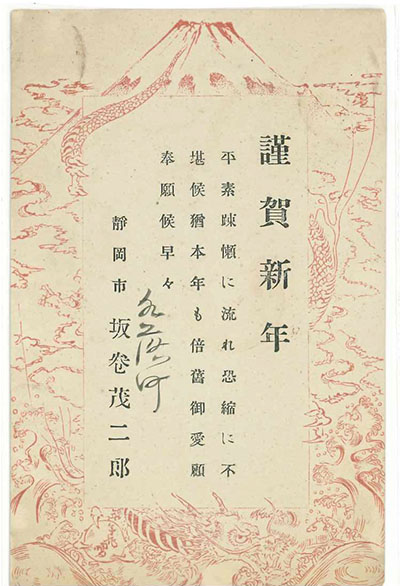 謹賀新年
平素踈懶に流れ恐縮に不
堪候猶本年も倍舊御愛顧
奉願候早々
靜岡市 坂巻茂二郎